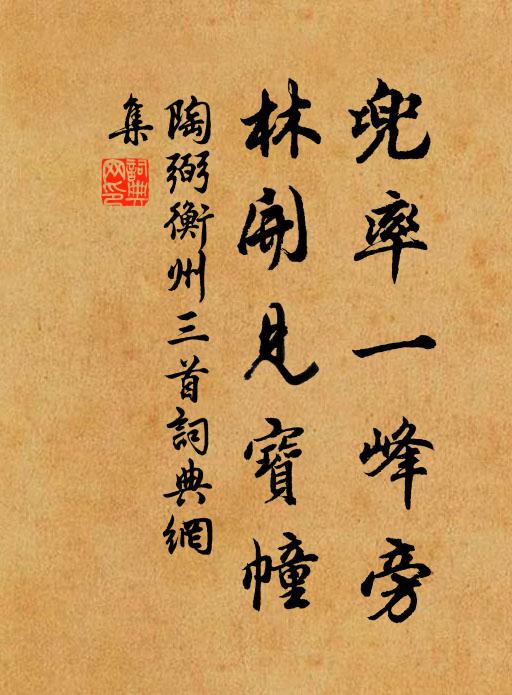 兜率一峰旁
林開見寶幢
陶弼衡州三首詞典網
集
詞典
网印